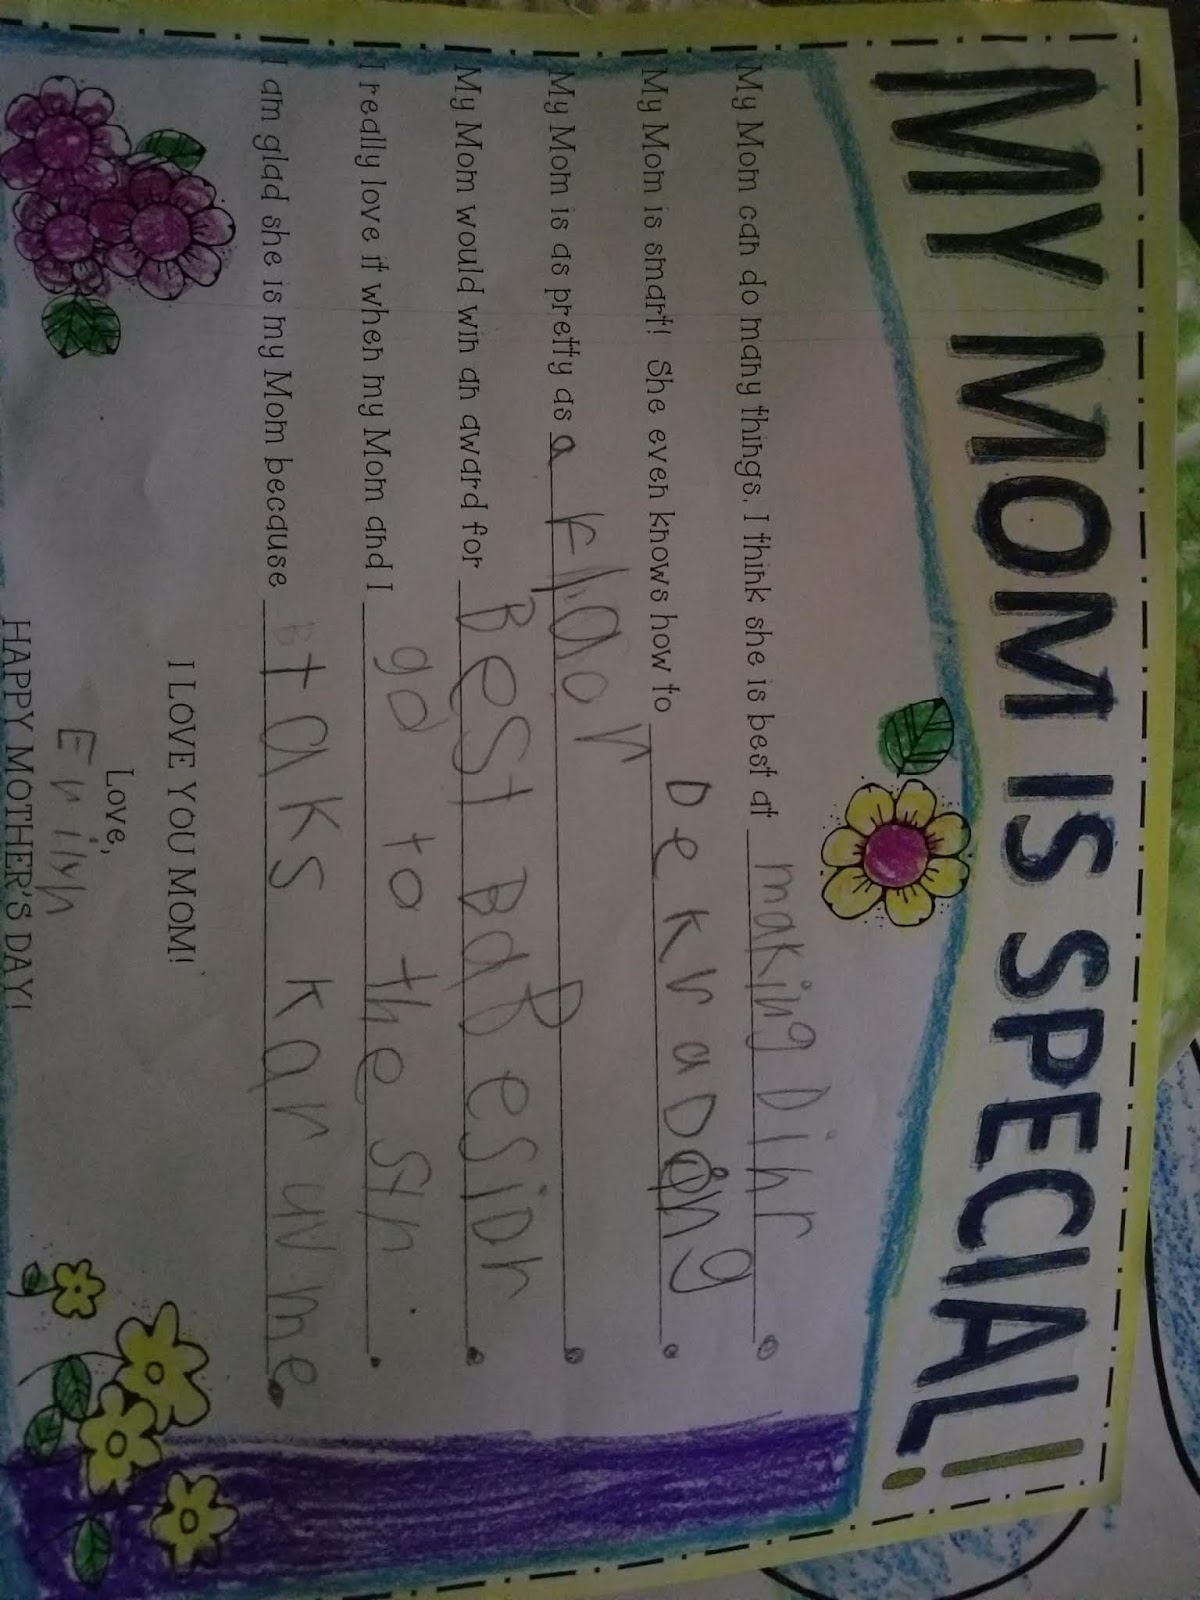 MY MOM IS SPECIAL!
My Mom can do many things. I think she is best at making Dinr.
My Mom is smart! She even knows how to DekraDing.
My Mom is as pretty as a Flaor.
My Mom would win an award for Best
I really love it when my Mom and I go to the Str.
I am glad she is my Mom because taks kar uv me.
I LOVE YOU MOM!
Love,
HAPPY MOTHER'S DAY!